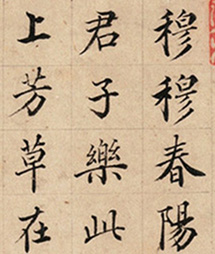 穆穆春陽
君子樂此
上芳草在